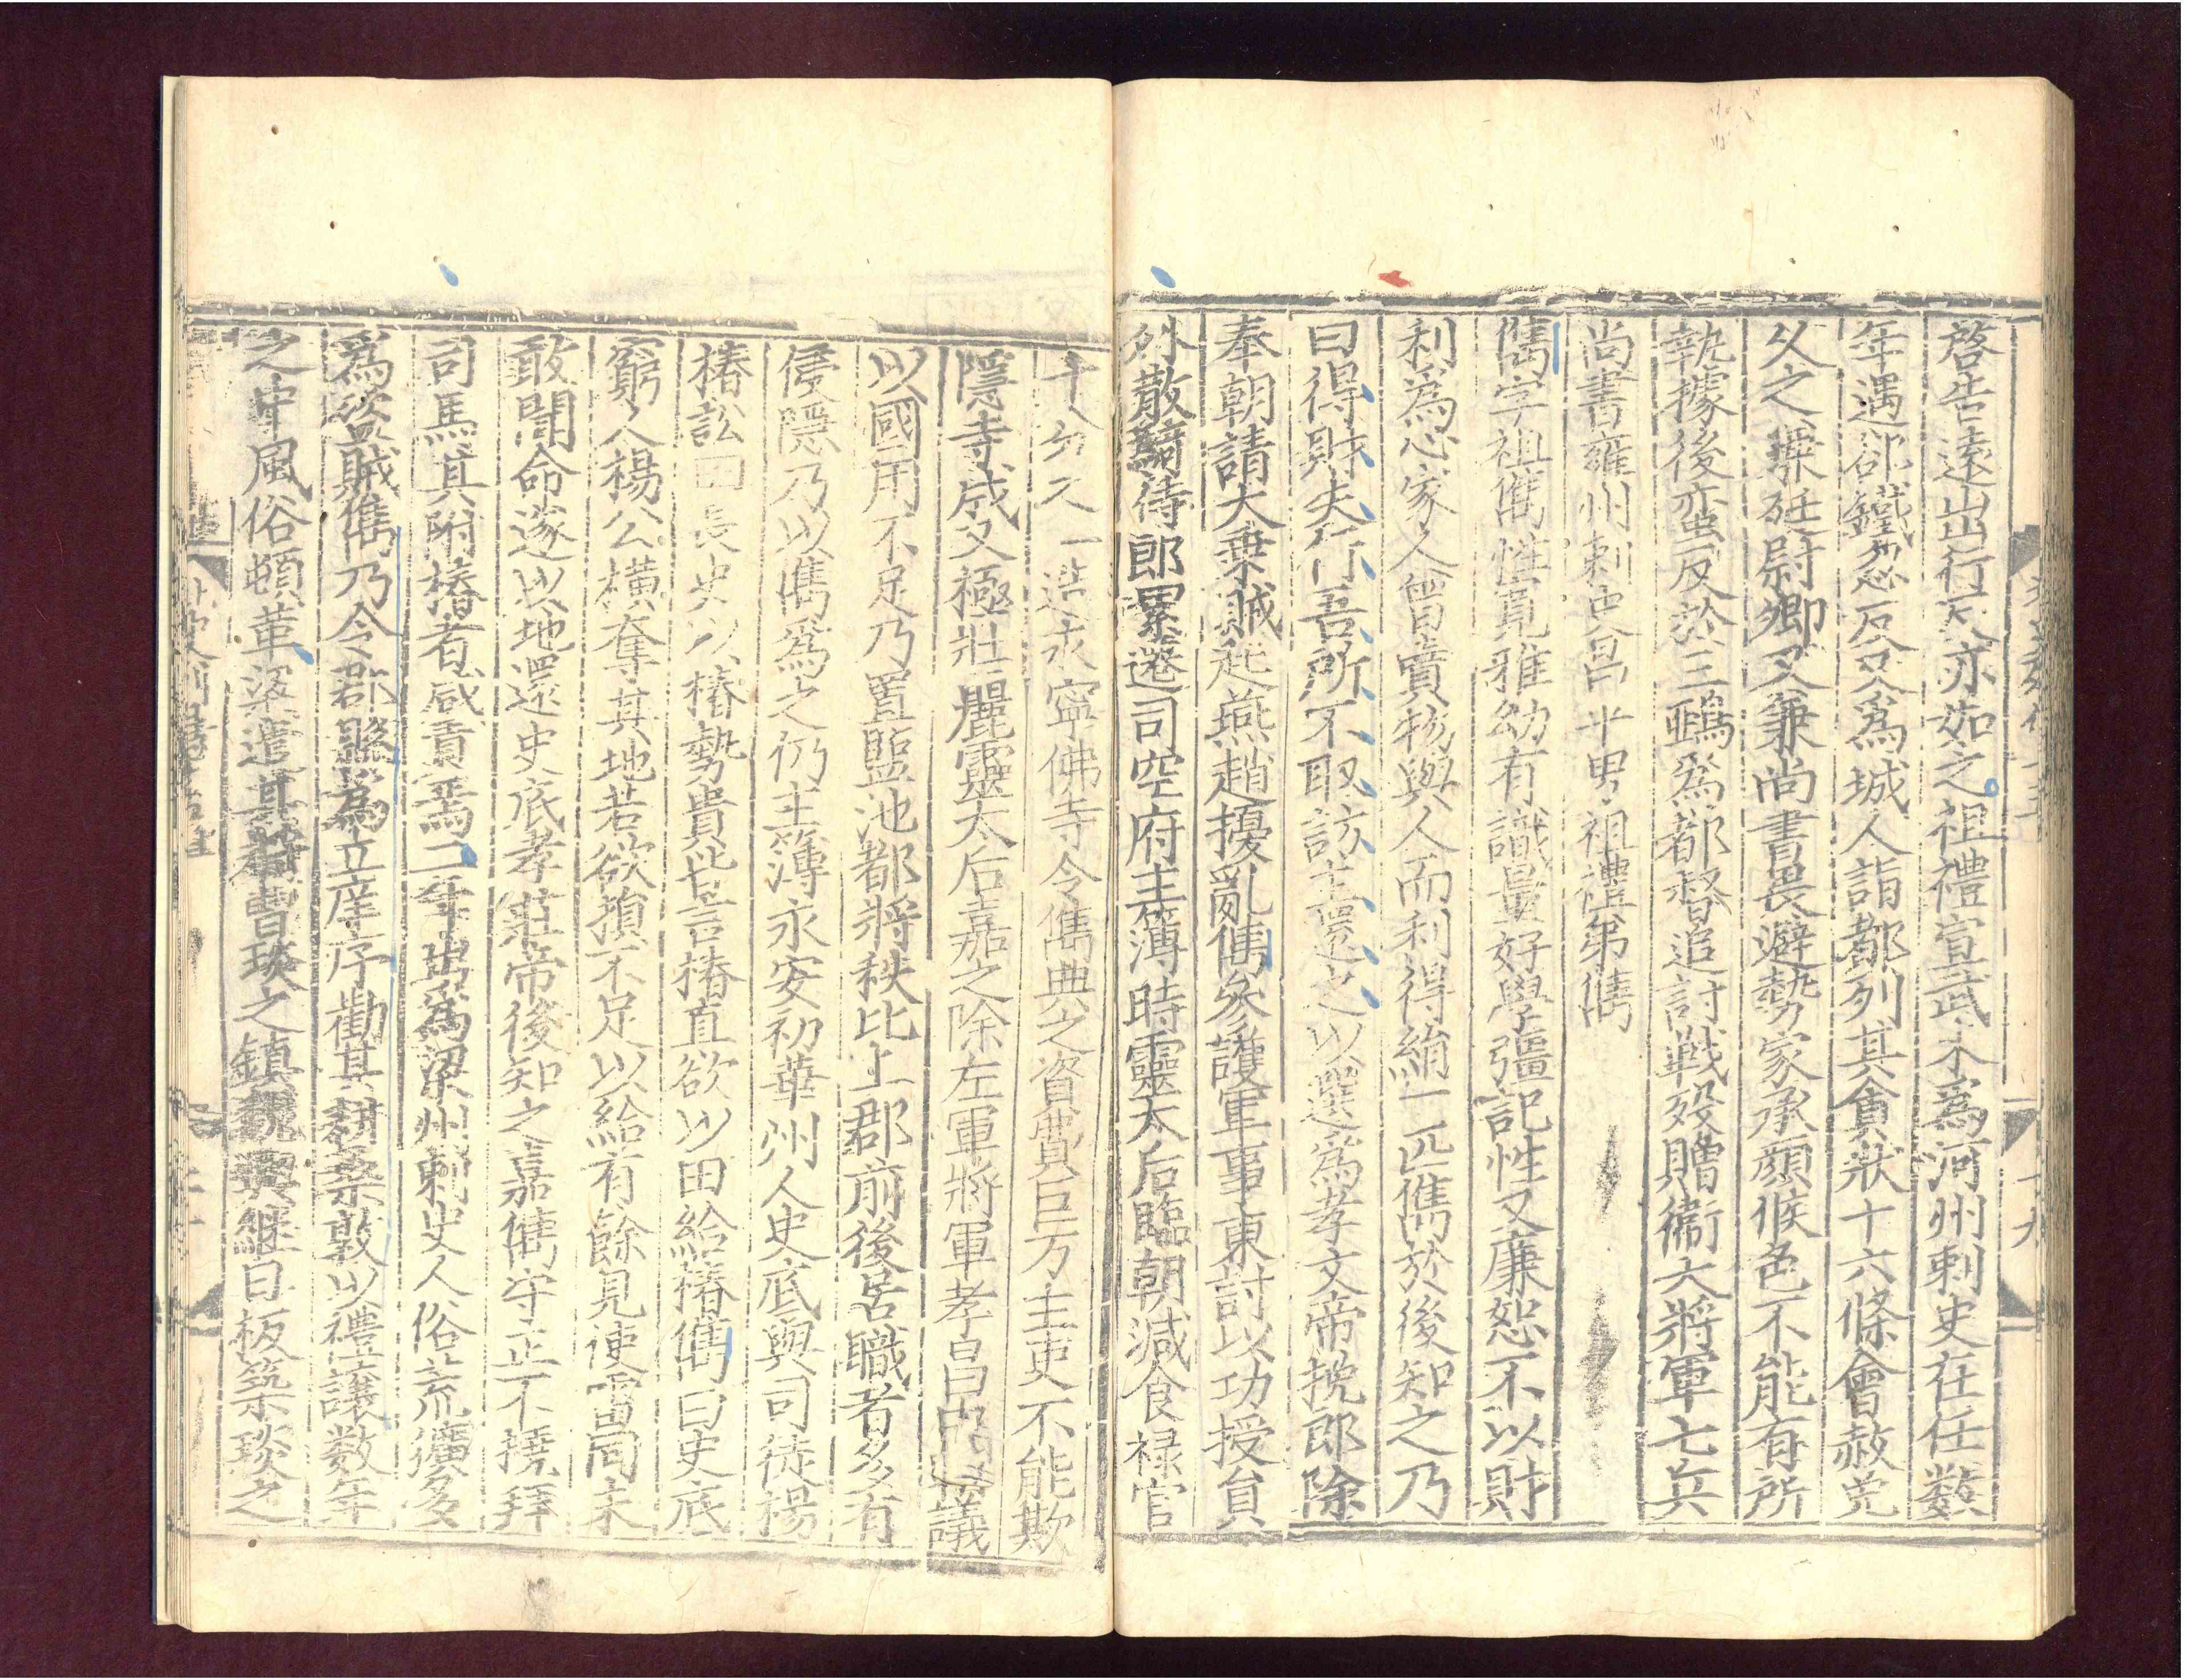 啓告遠出行不亦如之祖禮宣武末爲河州刺史在任數
年遇却鐵忽反久爲城人詣都列其貪狀十六條會赦免
久之兼廷尉卿又兼尚書畏避勢家承顔候色不能有所
執據後蛮反於三鵶爲都督追討戰殁贈衛大將軍七兵
尚書雍州刺史昌平男祖禮弟儁
儁字祖儁性寛雅幼有識量好學彊記性又廉恕不以財
利爲心家人曾賣物與人而利得絹一匹儁於後知之乃
曰得財失行吾所不取訪主還之以選爲孝文帝挽郎除
奉朝請大乗賊起燕趙擾亂儁叅護軍事東討以功授員
外散騎侍郎累遷司空府主簿時靈太后臨朝減食禄官
十分之一造永寧佛寺令儁典之資費巨万主吏不能欺
隱寺成又極壯麗靈太后嘉之除左軍將軍孝昌中朝議
以國用不足乃置鹽池都將秩比上郡前後居職者多有
侵隱乃以儁爲之仍主簿永安初華州人史底與司徒楊
椿訟曰長史以椿勢貴皆言椿直欲以田給椿儁曰史底
窮人楊公横奪其地若欲損不足以給有餘見使雷同未
敢聞命遂以地還史底孝莊帝後知之嘉儁守正不撓拜
司馬其附椿者咸責焉二年出爲梁州刺史人俗荒獷多
爲盗賊儁乃令郡縣爲立庠序勸其耕桑敦以禮讓数年
之中風俗頓革梁遣其將曹琰之鎮魏興継日板築琰之